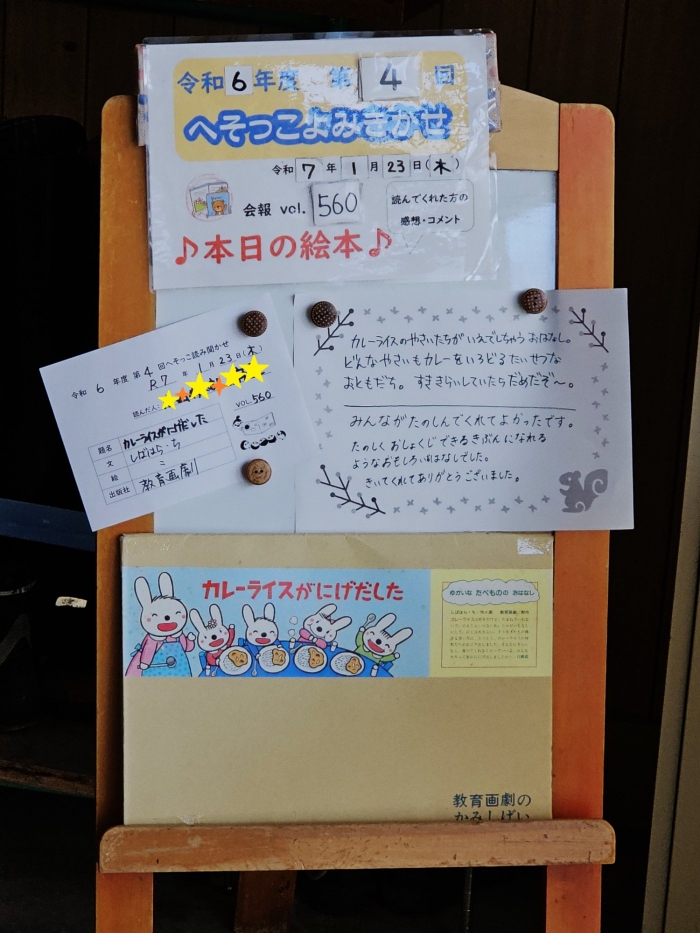 令和6年度 第4回
へそっこよみきかせ
令和7年1月23日(木)
会報 vol. 560
読んでくれた方の
感想・コメント
♪本日の絵本♪
令和 6 年度 第 4 回へそっこ読み聞かせ
R7 年 1月 23日(木)
読んだ人:
VOL.560
題名 カレーライスがにげだした
文 しばはら・ち
絵 〃
出版社 教育画劇
カレーライスのやさいたちが いえでしちゃう おはなし。
どんなやさいもカレーをいろどる たいせつな
おともだち。 すききらいしていたらだめだぞ〜。
みんながたのしんでくれてよかったです。
たのしく おしょくじできるきぶんになれる
ようなおもしろいおはなしでした。
きいてくれてありがとうございました。
カレーライスがにげだした
ゆかいな たべものの おはなし
教育画劇の
かみしばい